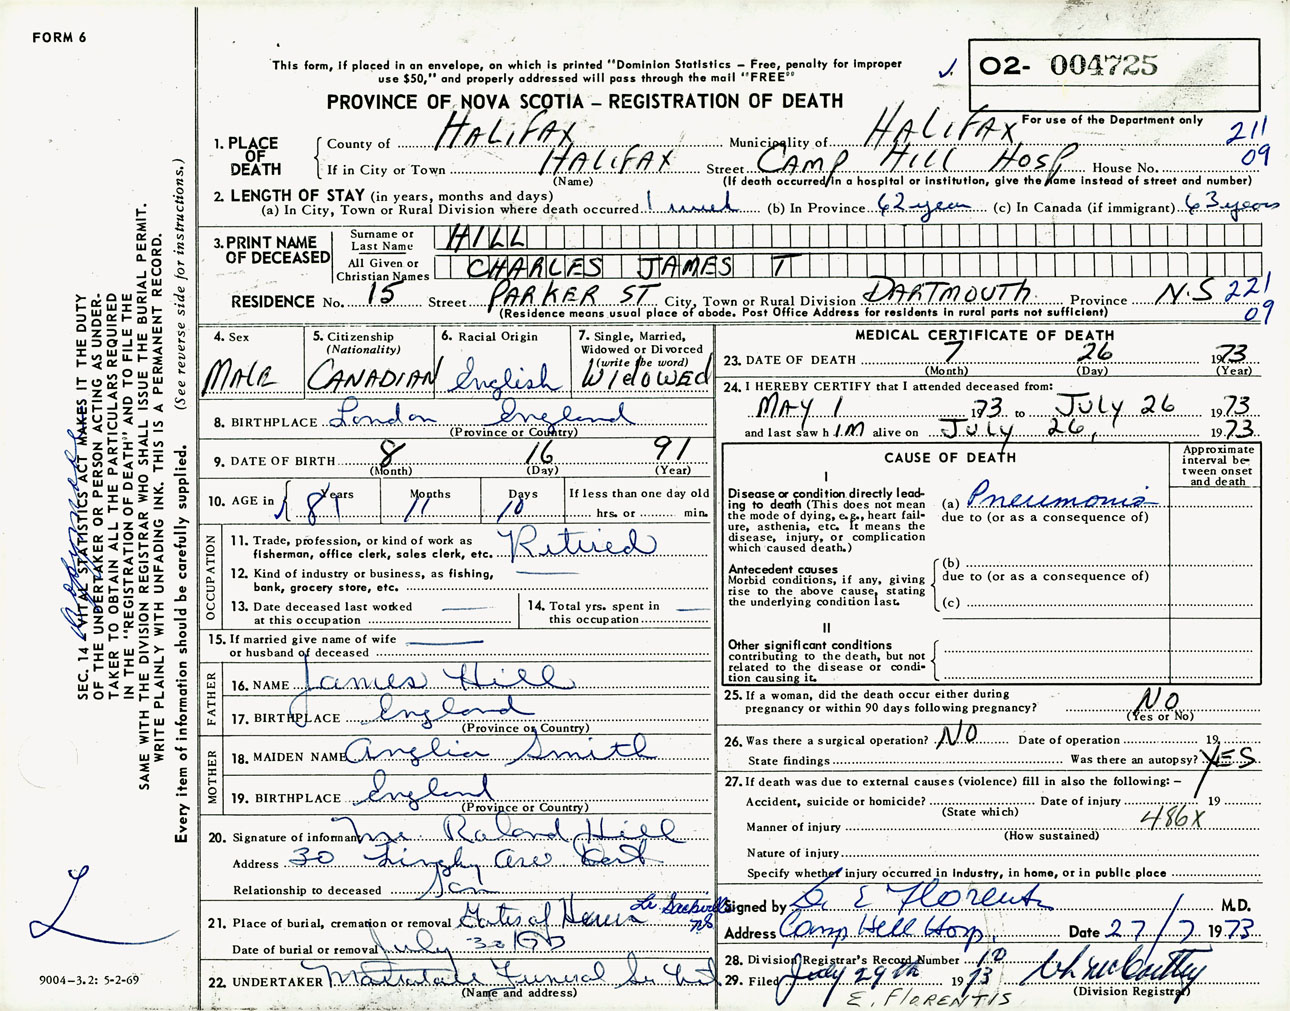 FORM 6
This form, if placed in an envelope, on which is printed "Dominion Statistics – Free, penalty for improper
use $50," and properly addressed will pass through the mail "FREE"
O2- 004725
PROVINCE OF NOVA SCOTIA – REGISTRATION OF DEATH
For use of the Department only
211
09
1. PLACE OF DEATH
County of HALIFAX Municipality of HALIFAX
If in City or Town HALIFAX Street CAMP HILL HOSP House No.
(Name) (If death occurred in a hospital or institution, give the name instead of street and number)
2. LENGTH OF STAY (in years, months and days)
(a) In City, Town or Rural Division where death occurred 1 (b) In Province 62 year (c) In Canada (if immigrant) 63 years
3. PRINT NAME OF DECEASED
Surname or Last Name HILL
All Given or Christian Names CHARLES JAMES T
RESIDENCE No. 15 Street PARKER ST City, Town or Rural Division DARTMOUTH Province N.S
221
09
(Residence means usual place of abode. Post Office Address for residents in rural parts not sufficient)
4. Sex
MALE
5. Citizenship
(Nationality)
CANADIAN
6. Racial Origin
English
7. Single, Married,
Widowed or Divorced
(write the word)
WIDOWED
8. BIRTHPLACE London England
(Province or Country)
9. DATE OF BIRTH 8 16 91
(Month) (Day) (Year)
10. AGE in Years Months Days If less than one day old
81 11 10 hrs. or min.
OCCUPATION
11. Trade, profession, or kind of work as
fisherman, office clerk, sales clerk, etc. Retired
12. Kind of industry or business, as fishing,
bank, grocery store, etc.
13. Date deceased last worked
at this occupation
14. Total yrs. spent in
this occupation
15. If married give name of wife
or husband of deceased
FATHER
16. NAME James Hill
17. BIRTHPLACE England
(Province or Country)
MOTHER
18. MAIDEN NAME Anglia Smith
19. BIRTHPLACE England
(Province or Country)
20. Signature of informant Mr. Roland Hill
Address 30
Relationship to deceased Son
21. Place of burial, cremation or removal Gates of Heaven Lr Sackville NS
Date of burial or removal July 30
22. UNDERTAKER Funeral
(Name and address)
MEDICAL CERTIFICATE OF DEATH
23. DATE OF DEATH 7 26 1973
(Month) (Day) (Year)
24. I HEREBY CERTIFY that I attended deceased from:
MAY 1 1973 to JULY 26 1973
and last saw h IM alive on JULY 26, 1973
CAUSE OF DEATH
Approximate
interval be-
tween onset
and death
I
Disease or condition directly lead-
ing to death (This does not mean
the mode of dying, e.g., heart fail-
ure, asthenia, etc. It means the
disease, injury, or complication
which caused death.)
(a) Pneumonia
due to (or as a consequence of)
Antecedent causes
Morbid conditions, if any, giving
rise to the above cause, stating
the underlying condition last.
(b)
due to (or as a consequence of)
(c)
II
Other significant conditions
contributing to the death, but not
related to the disease or condi-
tion causing it.
25. If a woman, did the death occur either during
pregnancy or within 90 days following pregnancy? NO
(Yes or No)
26. Was there a surgical operation? NO Date of operation 19
State findings Was there an autopsy? YES
27. If death was due to external causes (violence) fill in also the following: –
Accident, suicide or homicide? Date of injury 19
(State which)
486X
Manner of injury
(How sustained)
Nature of injury
Specify whether injury occurred in Industry, in home, or in public place
Signed by Dr. E Florentis M.D.
Address Camp Hill Hosp Date 27/7 1973
28. Division Registrar's Record Number
29. Filed July 29th 1973
(Division Registrar)
E. FLORENTIS
SEC. 14 – VITAL STATISTICS ACT MAKES IT THE DUTY
OF THE UNDERTAKER OR PERSON ACTING AS UNDER-
TAKER TO OBTAIN ALL THE PARTICULARS REQUIRED
IN THE "REGISTRATION OF DEATH" AND TO FILE THE
SAME WITH THE DIVISION REGISTRAR WHO SHALL ISSUE THE BURIAL PERMIT.
WRITE PLAINLY WITH UNFADING INK. THIS IS A PERMANENT RECORD.
Every item of information should be carefully supplied. (See reverse side for instructions.)
9004-3.2: 5-2-69